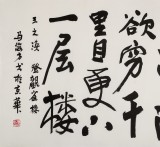 欲穷千
里目更上
一层楼
王之涣 登鹳雀楼
书于京华